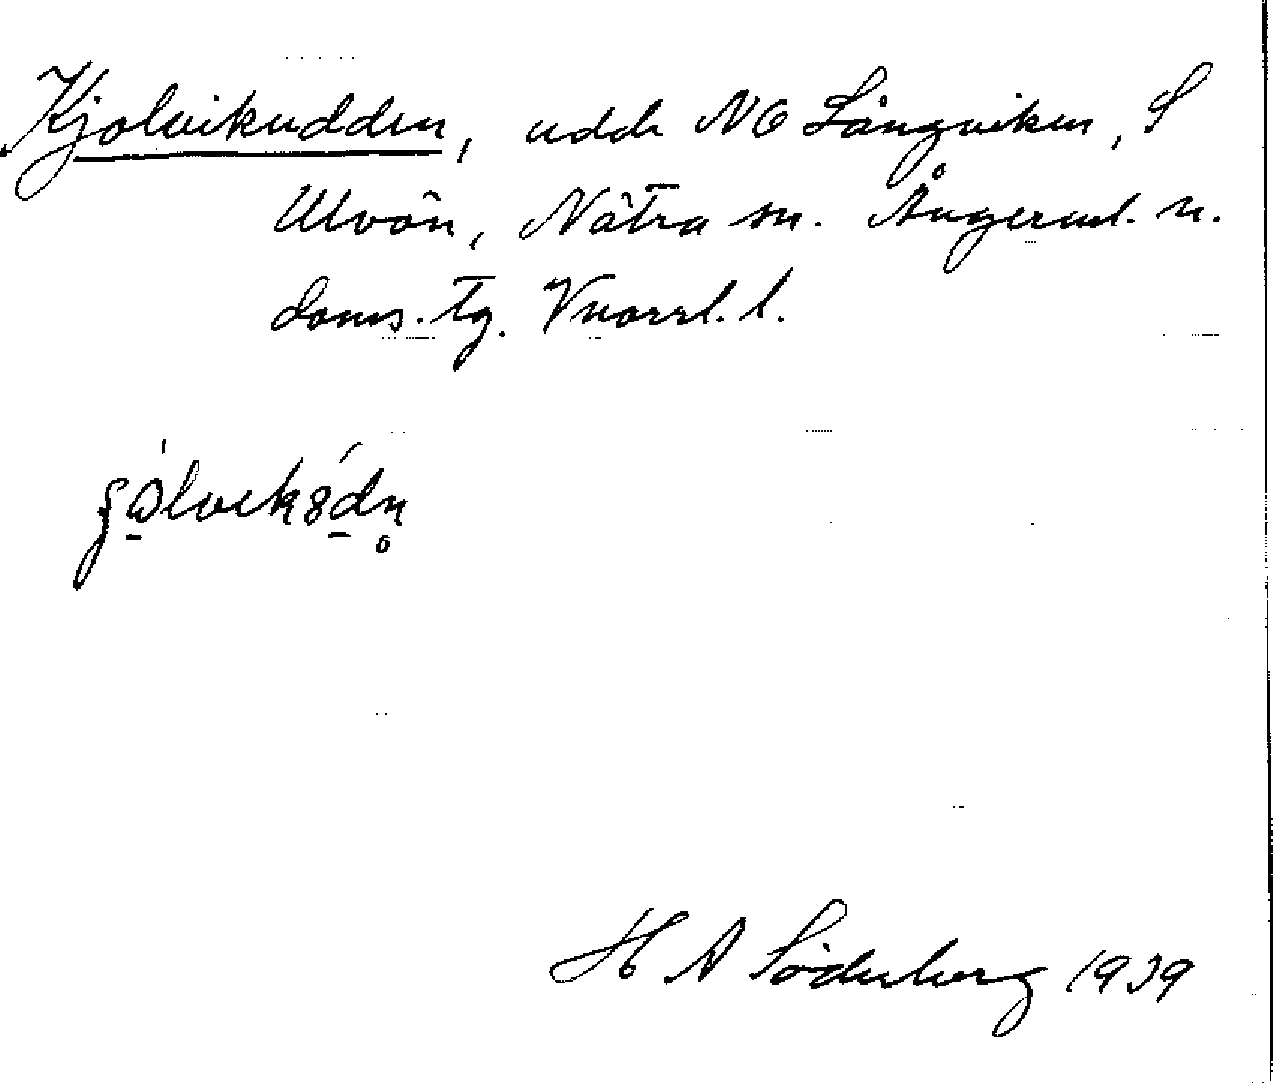 Kjolvikudden, udde NO Långviken, S
Ulvön, Nätra sn. Ångerml. n.
doms. tg. Vnorrl. l.
H A Söderberg 1939